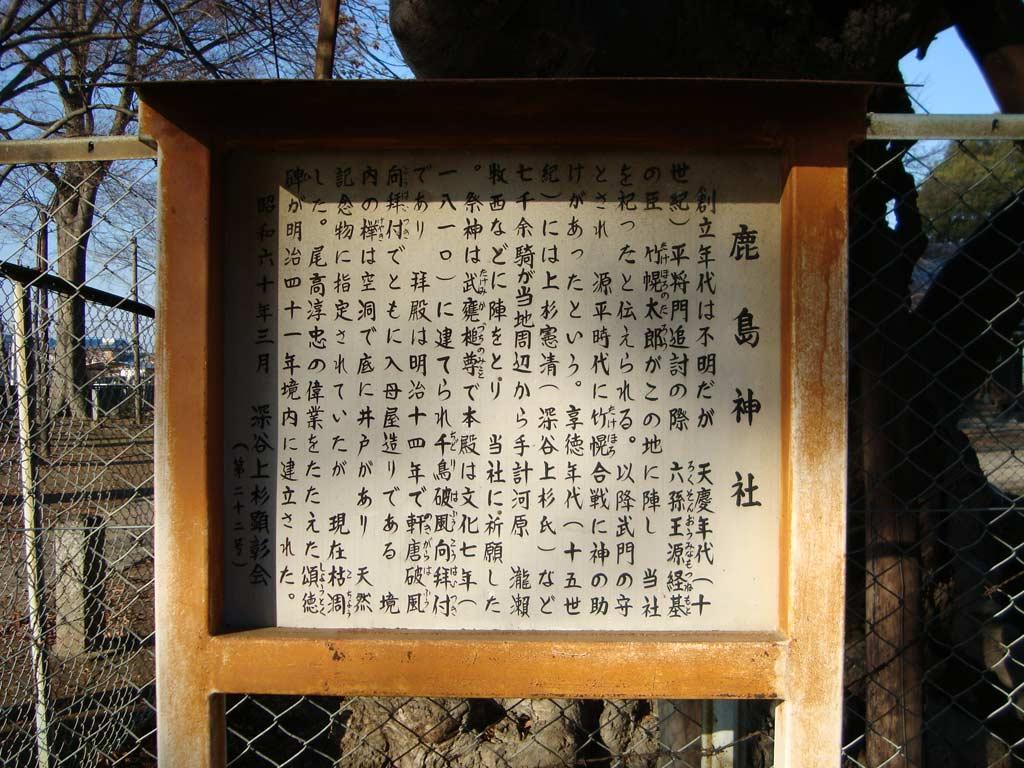 鹿島神社
創立年代は不明だが　天慶年代（十
世紀）平将門追討の際　六孫王源経基
の臣　竹幌太郎がこの地に陣し　当社
を祀ったと伝えられる。以降武門の守
とされ　源平時代に竹幌合戦に神の助
けがあったという。享徳年代（十五世
紀）には上杉憲清（深谷上杉氏）など
七千余騎が当地周辺から手計河原　瀧瀬
牧西などに陣をとり　当社に祈願した
。祭神は武甕槌尊で本殿は文化七年（
一八一〇）に建てられ千鳥破風向拝付
であり　拝殿は明治十四年で軒唐破風
向拝付でともに入母屋造りである　境
内の欅は空洞で底に井戸があり　天然
記念物に指定されていたが　現在枯凋
した。尾高淳忠の偉業をたたえた頌徳
碑が明治四十一年境内に建立された。
昭和六十年三月　深谷上杉顕彰会
（第二十二号）